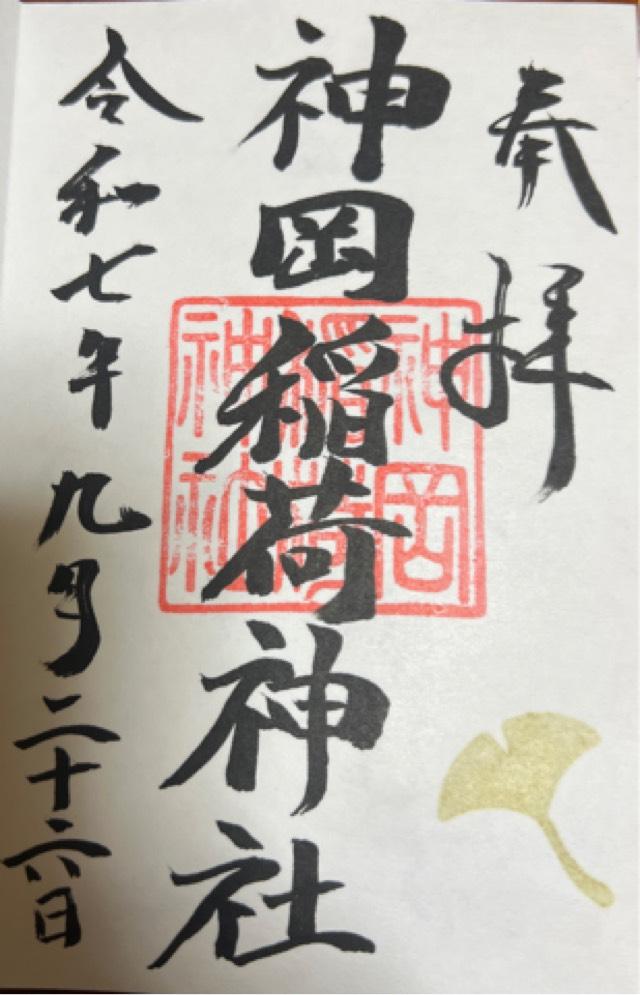 奉拝
神岡稲荷神社
神岡稲荷神社
令和七年九月二十六日